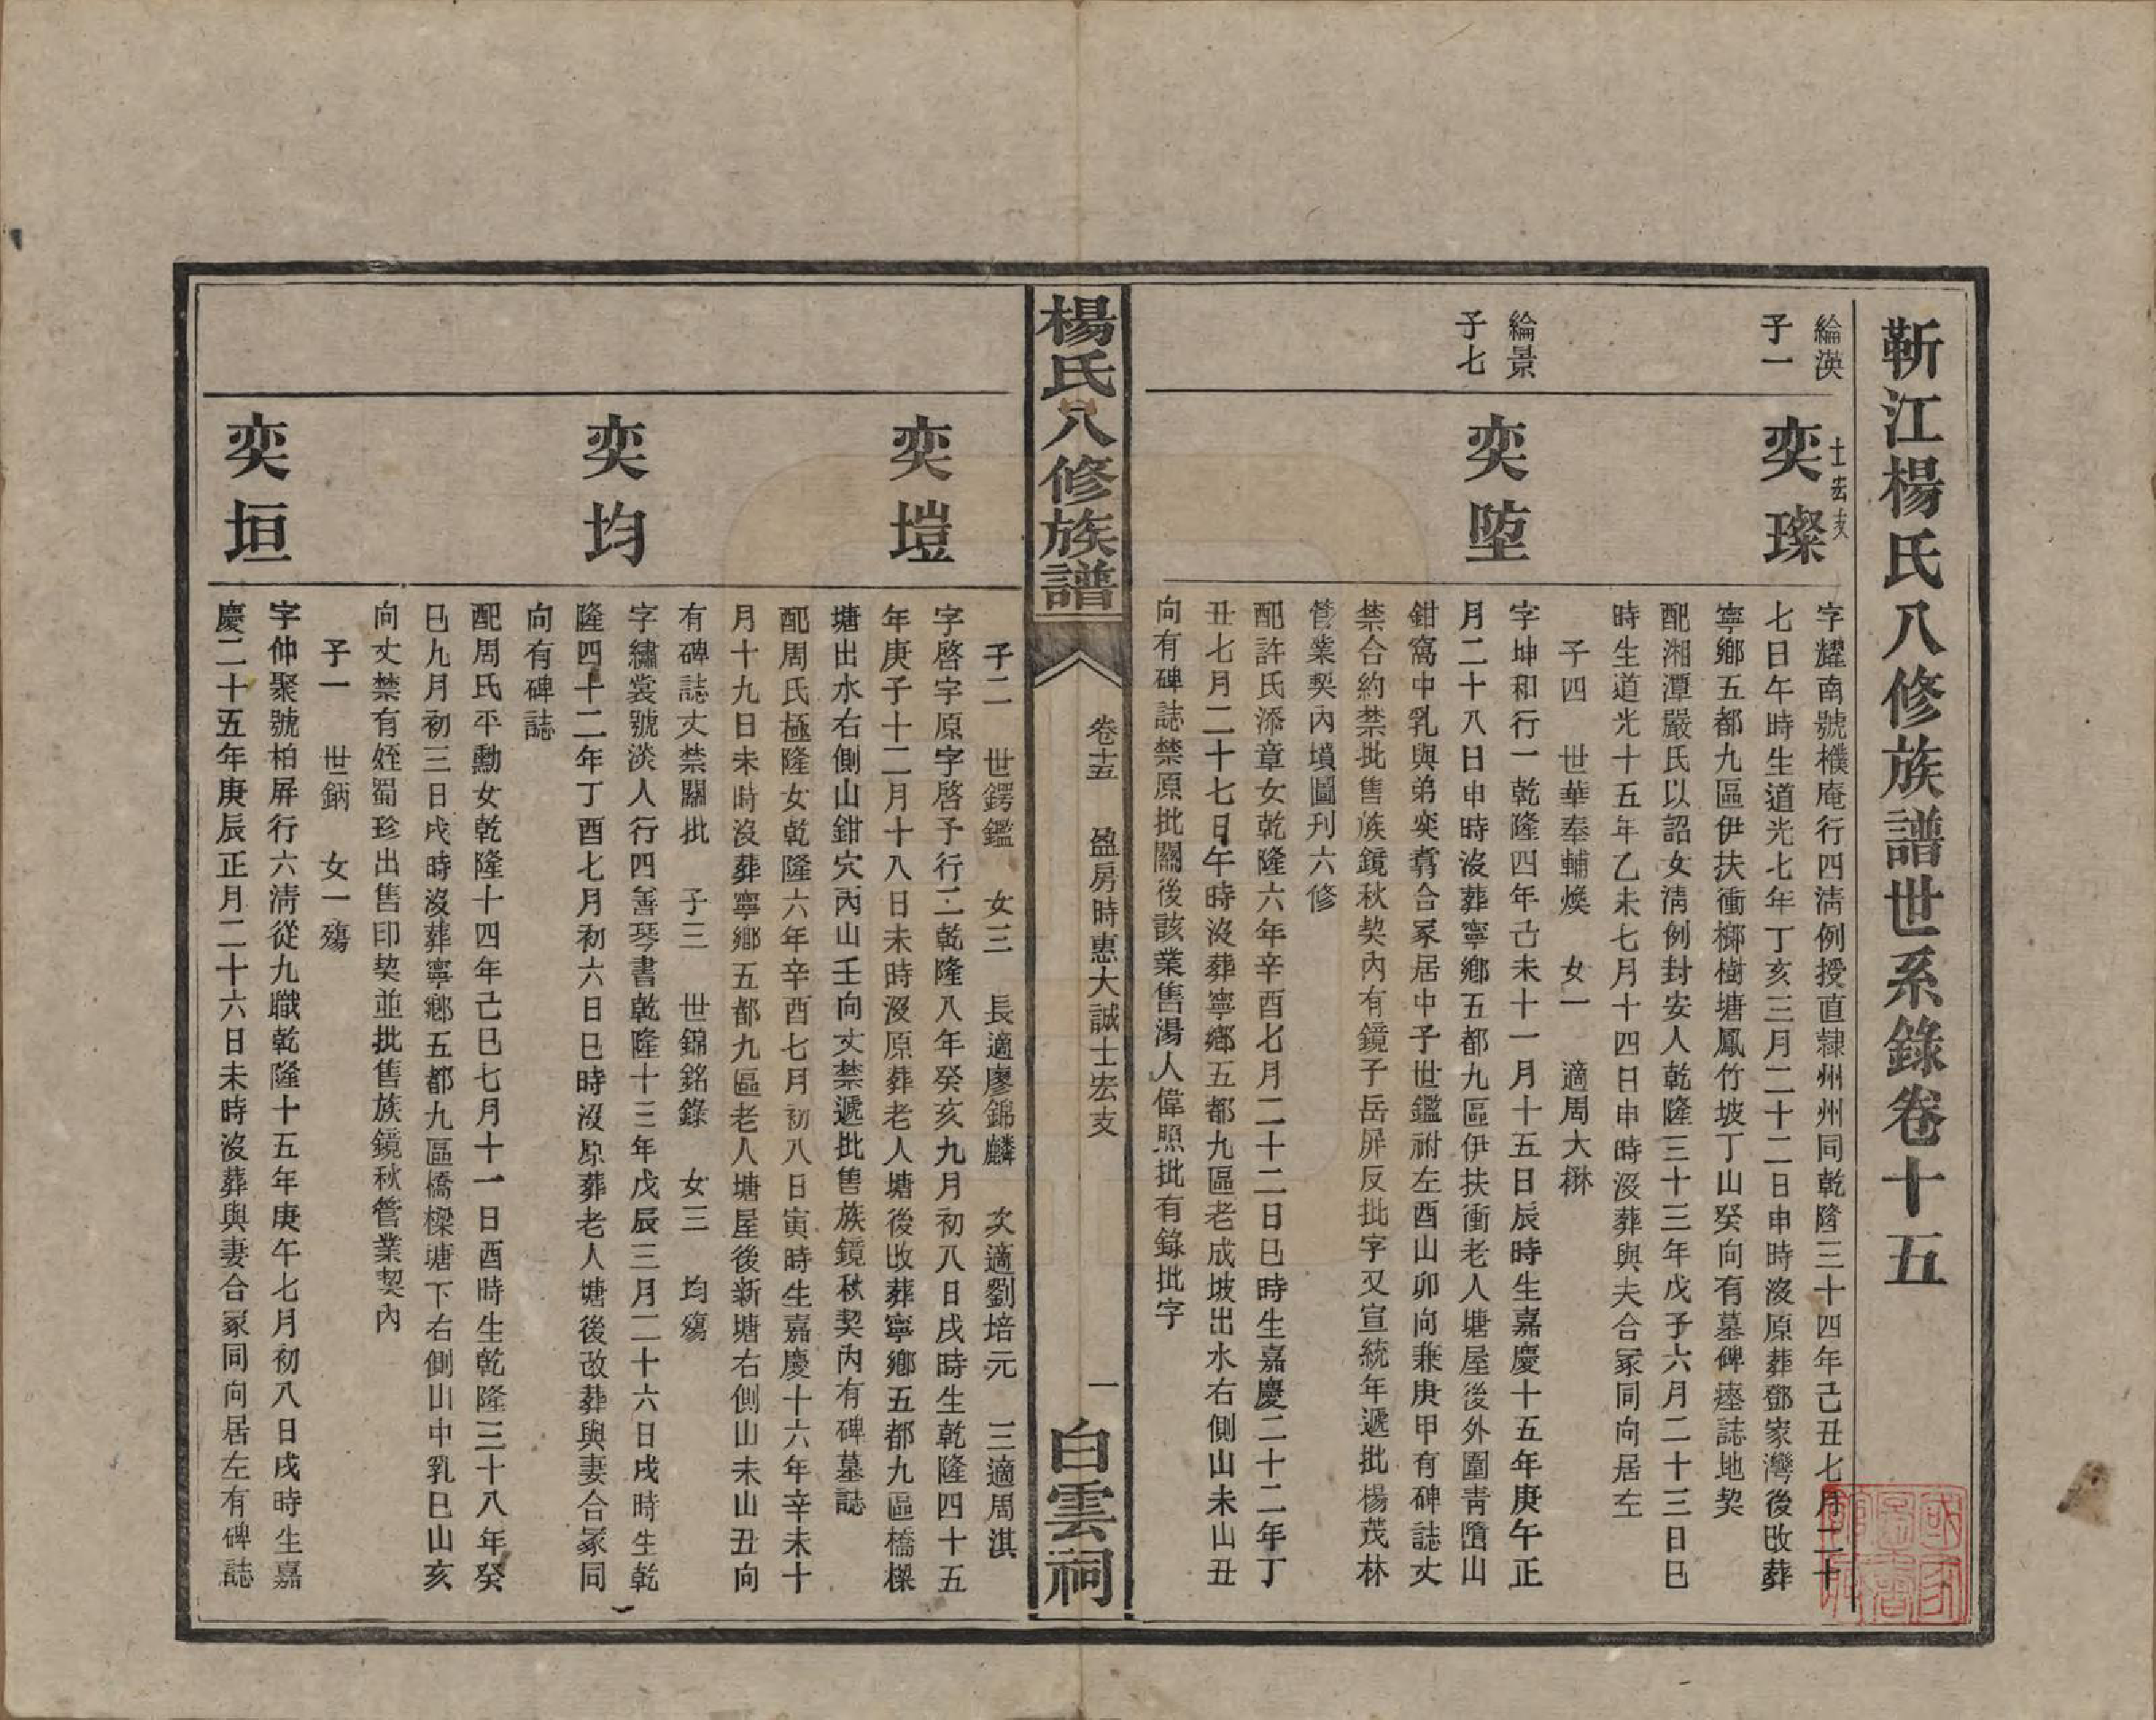 靳江楊氏八修族譜世系錄卷十五
綸渶
子一
士宏支
奕璨
字耀南號樸庵行四淸例授直隷州州同乾隆三十四年己丑七月二十
七日午時生道光七年丁亥三月二十二日申時沒原葬鄧家灣後改葬
寧鄉五都九區伊扶衝槨樹塘鳳竹坡丁山癸向有墓碑塟誌地契
配湘潭嚴氏以詔女淸例封安人乾隆三十三年戊子六月二十三日巳
時生道光十五年乙未七月十四日申時沒葬與夫合冢同向居左
子四　世華奉輔煥　女一　適周大楙
綸景
子七
奕墮
字坤和行一乾隆四年己未十一月十五日辰時生嘉慶十五年庚午正
月二十八日申時沒葬寧鄉五都九區伊扶衝老人塘屋後外圍青嶞山
鉗窩中乳與弟奕翥合冢居中子世鑑祔左酉山卯向兼庚甲有碑誌丈
禁合約禁批售族鏡秋契內有鏡子岳屏反批字又宣統年遞批楊茂林
管業契內墳圖刊六修
配許氏添章女乾隆六年辛酉七月二十二日巳時生嘉慶二十二年丁
丑七月二十七日午時沒葬寧鄉五都九區老成坡出水右側山未山丑
向有碑誌禁原批關後該業售湯人偉照批有錄批字
楊氏八修族譜
卷十五　盈房時惠大誠士宏支
一
白雲祠
子二　世鍔鑑　女三　長適廖錦麟　次適劉培元　三適周淇
奕塏
字啓宇原字啓予行二乾隆八年癸亥九月初八日戌時生乾隆四十五
年庚子十二月十八日未時沒原葬老人塘後改葬寧鄉五都九區橋樑
塘出水右側山鉗穴丙山壬向丈禁遞批售族鏡秋契內有碑墓誌
配周氏極隆女乾隆六年辛酉七月初八日寅時生嘉慶十六年辛未十
月十九日未時沒葬寧鄉五都九區老人塘屋後新塘右側山未山丑向
有碑誌丈禁關批　子三　世錦銘錄　女三　均殤
奕均
字繡裳號淡人行四善琴書乾隆十三年戊辰三月二十六日戌時生乾
隆四十二年丁酉七月初六日巳時沒原葬老人塘後改葬與妻合冢同
向有碑誌
配周氏平勳女乾隆十四年己巳七月十一日酉時生乾隆三十八年癸
巳九月初三日戌時沒葬寧鄉五都九區橋樑塘下右側山中乳巳山亥
向丈禁有姪蜀珍出售印契並批售族鏡秋管業契內
子一　世鈵　女一殤
奕垣
字仲聚號柏屏行六淸從九職乾隆十五年庚午七月初八日戌時生嘉
慶二十五年庚辰正月二十六日未時沒葬與妻合冢同向居左有碑誌